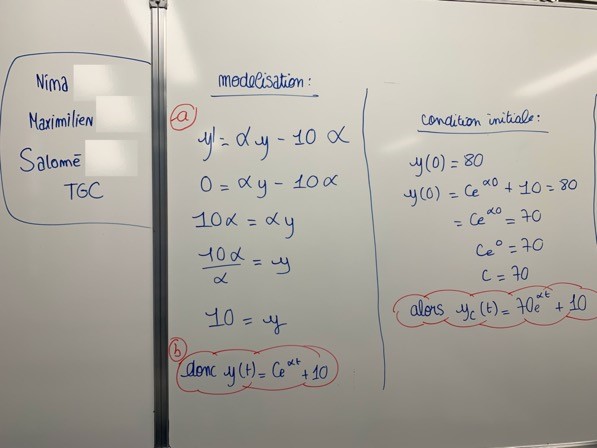 Nima
Maximilien
Salomé
TGC
modelisation:
a
y' = αy - 10 α
0 = αy - 10α
10α = αy
10α/α = y
10 = y
b
donc y(t) = Ce^αt + 10
condition initiale:
y(0) = 80
y(0) = Ce^α0 + 10 = 80
= Ce^α0 = 70
Ce^0 = 70
C = 70
alors y_c(t) = 70e^αt + 10